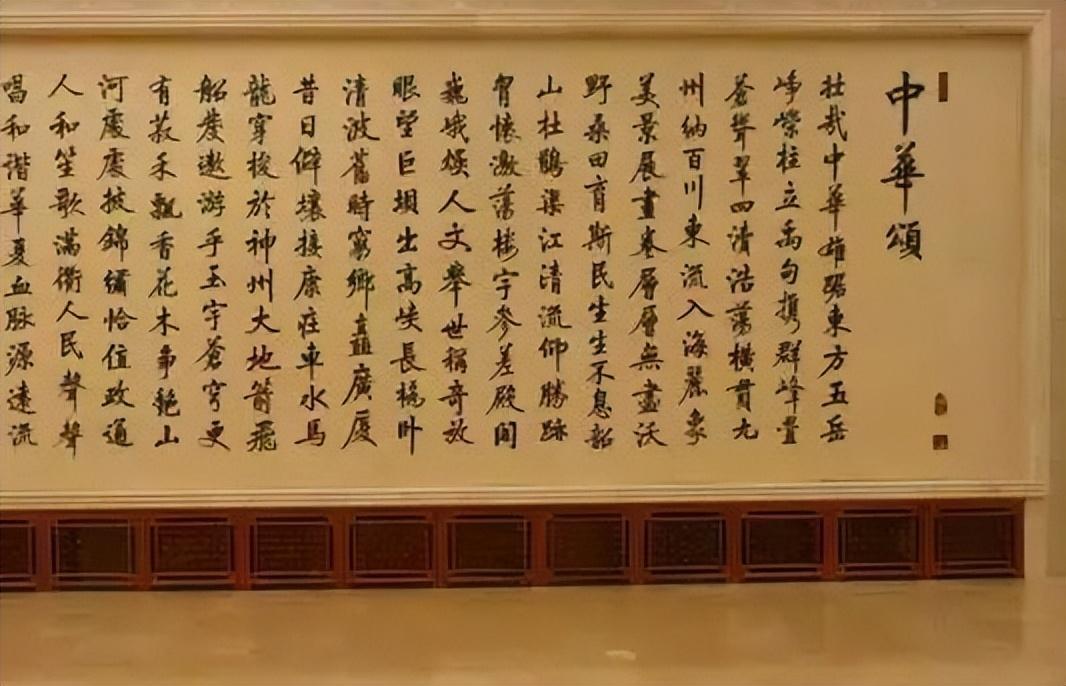 中華頌
壯哉中華雄踞東方五岳
崢嶸柱立禹甸攜群峰疊
蒼聳翠四瀆浩蕩橫貫九
州納百川東流入海麗象
美景展畫卷層層無盡沃
野桑田育斯民生生不息韶
山杜鵑渠江清流仰勝跡
胷懷激蕩樓宇參差殿閣
巍峨燦人文舉世稱奇放
眼望巨壩出高峽長橋卧
清波舊時窮鄉矗廣廈
昔日僻壤接康莊車水馬
龍穿梭於神州大地箭飛
船發遨游乎玉宇蒼穹更
有菽禾飄香花木爭艷山
河處處披錦繡恰值政通
人和笙歌滿衢人民聲聲
唱和諧華夏血脈源遠流